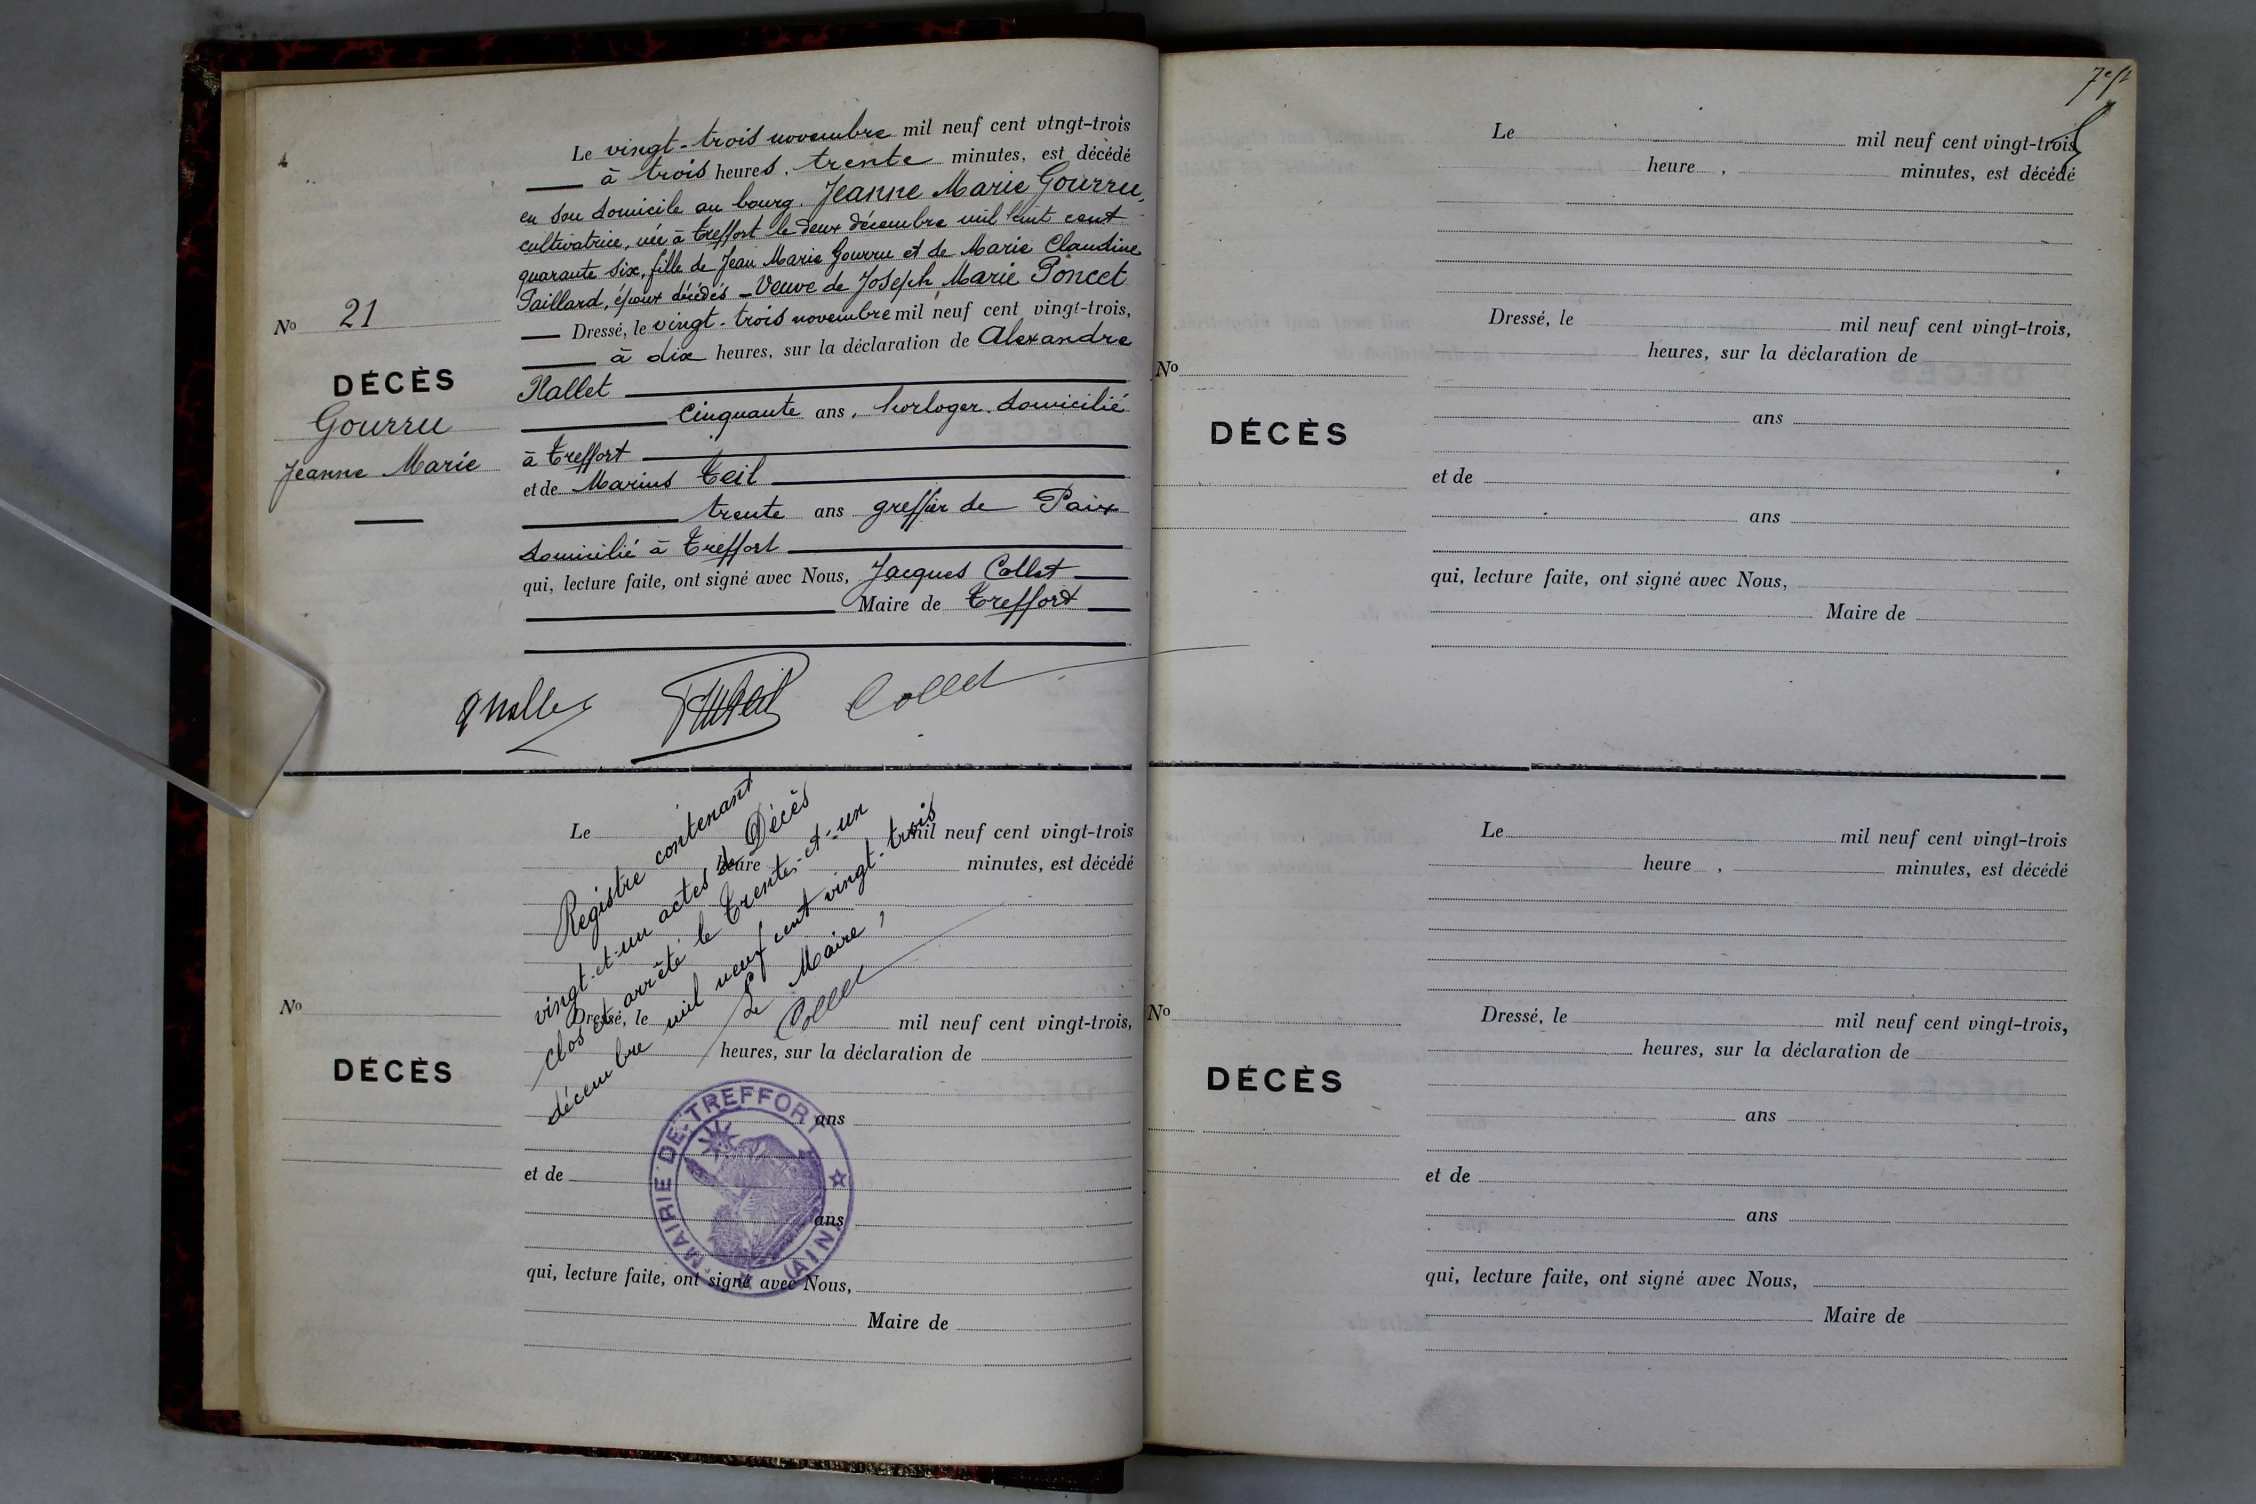 Le vingt-trois novembre mil neuf cent vingt-trois
à trois heures, trente minutes, est décédé
en son domicile au bourg. Jeanne Marie Gourru,
cultivatrice, née à Treffort le deux décembre mil huit cent
quarante six, fille de Jean Marie Gourru et de Marie Claudine
Paillard, époux décédés - Veuve de Joseph Marie Poncet
Dressé, le vingt-trois novembre mil neuf cent vingt-trois,
à dix heures, sur la déclaration de Alexandre
Nallet
cinquante ans, horloger, domicilié
à Treffort
et de Marius Teil
trente ans greffier de Paix
domicilié à Treffort
qui, lecture faite, ont signé avec Nous, Jacques Collet
Maire de Treffort
No 21
DÉCÈS
Gourru
Jeanne Marie
Collet
Le mil neuf cent vingt-trois
heure minutes, est décédé
Dressé, le mil neuf cent vingt-trois,
heures, sur la déclaration de
ans
et de
ans
qui, lecture faite, ont signé avec Nous,
Maire de
No
DÉCÈS
Registre contenant
vingt-et-un actes de Décès
clos et arrêté le trente-et-un
décembre mil neuf cent vingt-trois
Le Maire,
Collet
MAIRIE DE TREFFORT
(AIN)
7e ft
Le mil neuf cent vingt-trois
heure , minutes, est décédé
Dressé, le mil neuf cent vingt-trois,
heures, sur la déclaration de
No
DÉCÈS
ans
et de
ans
qui, lecture faite, ont signé avec Nous,
Maire de
Le mil neuf cent vingt-trois
heure , minutes, est décédé
Dressé, le mil neuf cent vingt-trois,
heures, sur la déclaration de
No
DÉCÈS
ans
et de
ans
qui, lecture faite, ont signé avec Nous,
Maire de